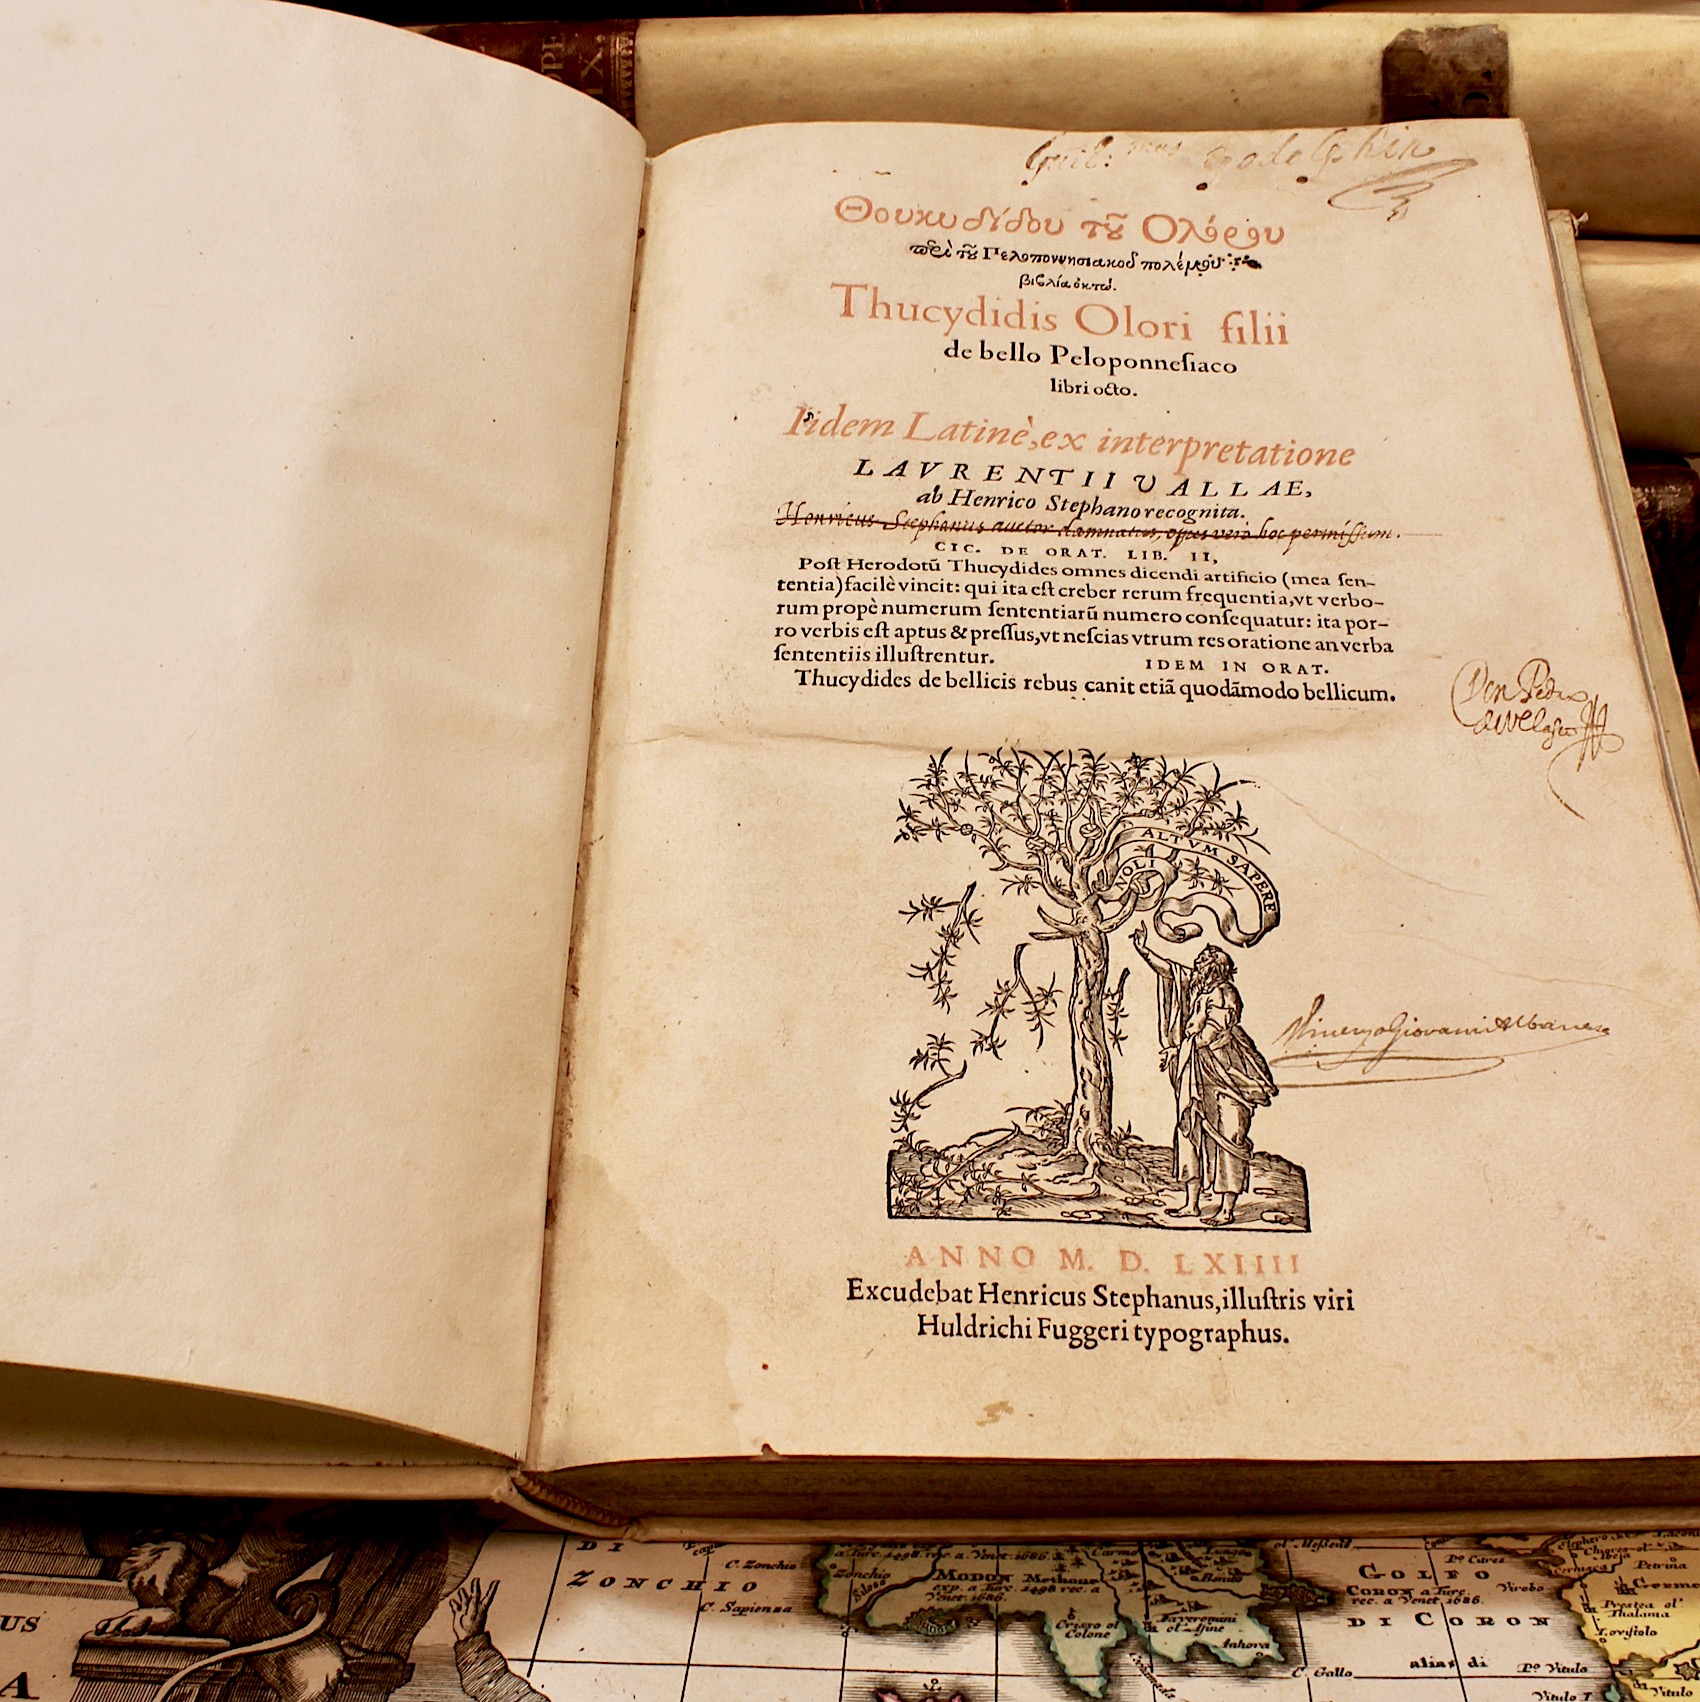 OPE
IX.
Θουκυδίδου τȣ͂ Ολόρου
περὶ τȣ͂ Πελοποννησιακοῦ πολέμου
βιβλία ὀκτώ.
Thucydidis Olori filii
de bello Peloponneſiaco
libri octo.
Iidem Latinè, ex interpretatione
LAVRENTII VALLAE,
ab Henrico Stephano recognita.
Henricus Stephanus auctor damnatus, opus verò hoc permiſſum.
CIC. DE ORAT. LIB. II,
Poſt Herodotū Thucydides omnes dicendi artificio (mea ſen-
tentia) facilè vincit: qui ita eſt creber rerum frequentia, vt verbo-
rum propè numerum ſententiarū numero conſequatur: ita por-
ro verbis eſt aptus & preſſus, vt neſcias vtrum res oratione an verba
ſententiis illuſtrentur. IDEM IN ORAT.
Thucydides de bellicis rebus canit etiā quodāmodo bellicum.
Don Pedro
de Velasco
NOLI ALTVM SAPERE
Giovanni Albanese
ANNO M. D. LXIIII
Excudebat Henricus Stephanus, illuſtris viri
Huldrichi Fuggeri typographus.
DI
ZONCHIO
C. Zonchio
C. Sapienza
Zonchio
a Turc. 1498. rec. a Venet. 1686.
MODON Methone
exp. a Turc. 1498 rec. a
Venet. 1686.
Criſſo ol
Colone
GOLFO
CORON a Turc.
rec. a Venet. 1686.
DI CORON
C. Gallo
alias di
Pº Vitulo
Vitulo
US
A